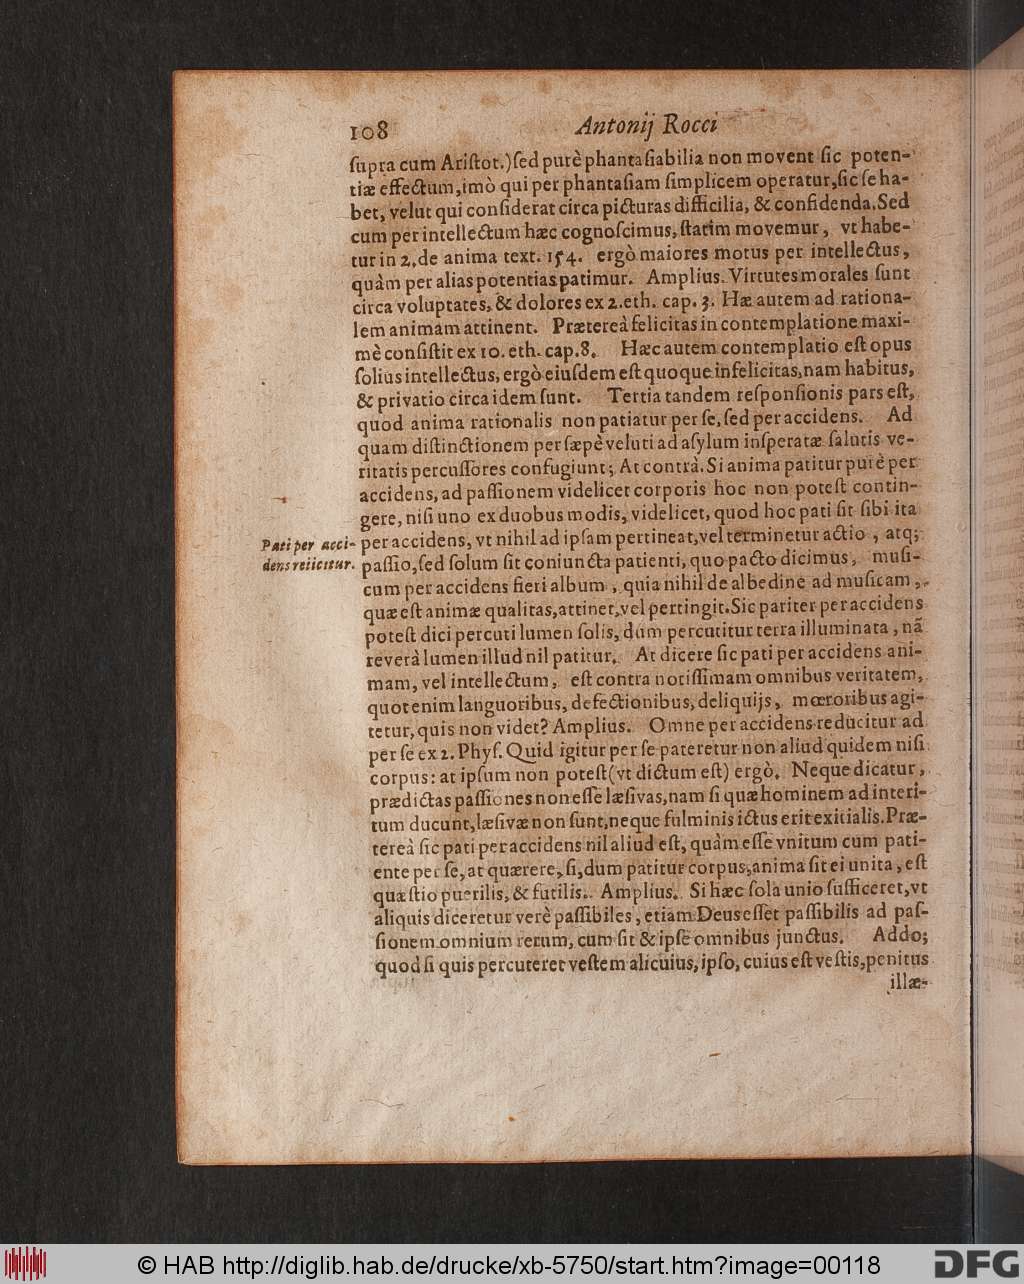 108 Antonij Rocci
ſupra cum Ariſtot.)ſed purè phantaſiabilia non movent ſic poten-
tiæ effectum,imò qui per phantaſiam ſimplicem operatur,ſic ſe ha-
bet, velut qui conſiderat circa picturas difficilia, & confidenda.Sed
cum per intellectum hæc cognoſcimus, ſtatim movemur, vt habe-
tur in 2.de anima text. 154. ergò maiores motus per intellectus,
quàm per alias potentias patimur. Amplius. Virtutes morales ſunt
circa voluptates, & dolores ex 2.eth. cap. 3. Hæ autem ad rationa-
lem animam attinent. Prætereà felicitas in contemplatione maxi-
mè conſiſtit ex 10. eth. cap.8. Hæc autem contemplatio eſt opus
ſolius intellectus, ergò eiuſdem eſt quoque infelicitas,nam habitus,
& privatio circa idem ſunt. Tertia tandem reſponſionis pars eſt,
quod anima rationalis non patiatur per ſe, ſed per accidens. Ad
quam diſtinctionem per ſæpè veluti ad aſylum inſperatæ ſalutis ve-
ritatis percuſſores confugiunt; At contrà. Si anima patitur purè per
accidens, ad paſſionem videlicet corporis hoc non poteſt contin-
gere, niſi uno ex duobus modis, videlicet, quod hoc pati ſit ſibi ita
Pati per acci-
dens reiicitur.
per accidens, vt nihil ad ipſam pertineat,vel terminetur actio , atq;
paſſio,ſed ſolum ſit coniuncta patienti, quo pacto dicimus, muſi-
cum per accidens fieri album , quia nihil de albedine ad muſicam ,
quæ eſt animæ qualitas,attinet,vel pertingit.Sic pariter per accidens
poteſt dici percuti lumen ſolis, dum percutitur terra illuminata , nã
reverà lumen illud nil patitur. At dicere ſic pati per accidens ani-
mam, vel intellectum, eſt contra notiſſimam omnibus veritatem,
quot enim languoribus, defectionibus, deliquijs, mœroribus agi-
tetur, quis non videt? Amplius. Omne per accidens reducitur ad
per ſe ex 2. Phyſ. Quid igitur per ſe pateretur non aliud quidem niſi
corpus: at ipſum non poteſt(vt dictum eſt) ergò. Neque dicatur,
prædictas paſſiones non eſſe læſivas,nam ſi quæ hominem ad interi-
tum ducunt,læſivæ non ſunt,neque fulminis ictus erit exitialis.Præ-
tereà ſic pati per accidens nil aliud eſt, quàm eſſe vnitum cum pati-
ente per ſe, at quærere, ſi,dum patitur corpus,anima ſit ei unita , eſt
quæſtio puerilis, & futilis. Amplius. Si hæc ſola unio ſufficeret,vt
aliquis diceretur verè paſſibiles, etiam Deus eſſet paſſibilis ad paſ-
ſionem omnium rerum, cum ſit & ipſe omnibus junctus. Addo;
quod ſi quis percuteret veſtem alicuius, ipſo, cuius eſt veſtis,penitus
illæ-
© HAB http://diglib.hab.de/drucke/xb-5750/start.htm?image=00118
DFG